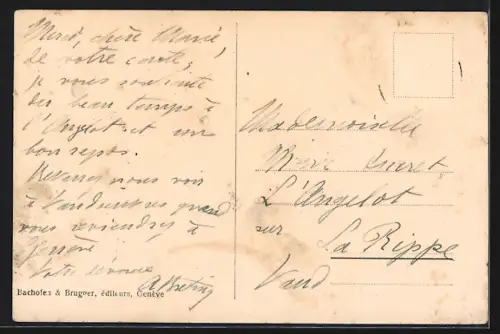 Merci, chère Marie,
de votre carte,
je vous souhaite
du beau temps à
l'Angelot et un
bon repos.
Revenez nous voir
à Vandoeuvres quand
vous reviendrez à
Genève
Votre dévouée
Bachofen & Brugger, éditeurs, Genève
Mademoiselle
Marie
L'Angelot
sur
La Rippe
Vaud